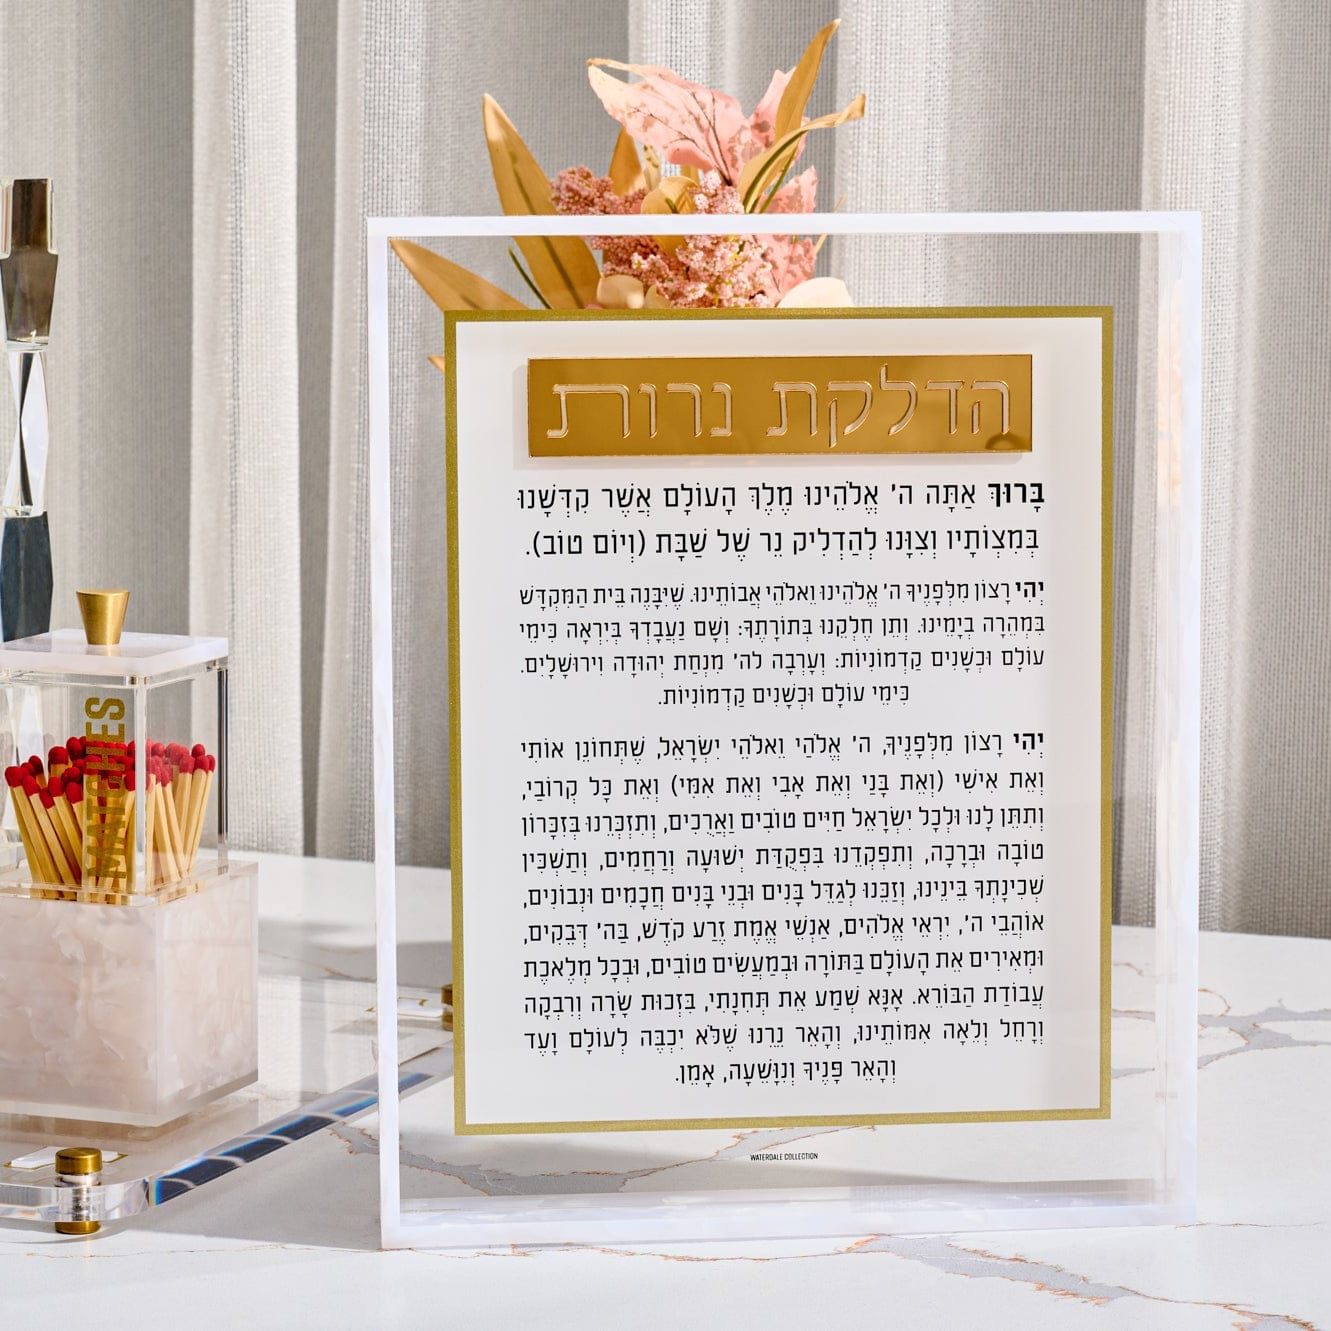 הדלקת נרות
בָּרוּךְ אַתָּה ה' אֱלֹהֵינוּ מֶלֶךְ הָעוֹלָם אֲשֶׁר קִדְּשָׁנוּ
בְּמִצְוֹתָיו וְצִוָּנוּ לְהַדְלִיק נֵר שֶׁל שַׁבָּת (וְיוֹם טוֹב).
יְהִי רָצוֹן מִלְּפָנֶיךָ ה' אֱלֹהֵינוּ וֵאלֹהֵי אֲבוֹתֵינוּ. שֶׁיִּבָּנֶה בֵּית הַמִּקְדָּשׁ
בִּמְהֵרָה בְיָמֵינוּ. וְתֵן חֶלְקֵנוּ בְּתוֹרָתֶךָ: וְשָׁם נַעֲבָדְךָ בְּיִרְאָה כִּימֵי
עוֹלָם וּכְשָׁנִים קַדְמוֹנִיּוֹת: וְעָרְבָה לה' מִנְחַת יְהוּדָה וִירוּשָׁלָיִם.
כִּימֵי עוֹלָם וּכְשָׁנִים קַדְמוֹנִיּוֹת.
יְהִי רָצוֹן מִלְּפָנֶיךָ, ה' אֱלֹהַי וֵאלֹהֵי יִשְׂרָאֵל, שֶׁתְּחוֹנֵן אוֹתִי
וְאֵת אִישִׁי (וְאֵת בָּנַי וְאֵת אָבִי וְאֵת אִמִּי) וְאֵת כָּל קְרוֹבַי,
וְתִתֵּן לָנוּ וּלְכָל יִשְׂרָאֵל חַיִּים טוֹבִים וַאֲרֻכִים, וְתִזְכְּרֵנוּ בְּזִכְרוֹן
טוֹבָה וּבְרָכָה, וְתִפְקְדֵנוּ בִּפְקֻדַּת יְשׁוּעָה וְרַחֲמִים, וְתַשְׁכִּין
שְׁכִינָתְךָ בֵּינֵינוּ, וְזַכֵּנוּ לְגַדֵּל בָּנִים וּבְנֵי בָנִים חֲכָמִים וּנְבוֹנִים,
אוֹהֲבֵי ה', יִרְאֵי אֱלֹהִים, אַנְשֵׁי אֱמֶת זֶרַע קֹדֶשׁ, בַּה' דְּבֵקִים,
וּמְאִירִים אֶת הָעוֹלָם בַּתּוֹרָה וּבְמַעֲשִׂים טוֹבִים, וּבְכָל מְלֶאכֶת
עֲבוֹדַת הַבּוֹרֵא. אָנָּא שְׁמַע אֶת תְּחִנָּתִי, בִּזְכוּת שָׂרָה וְרִבְקָה
וְרָחֵל וְלֵאָה אִמּוֹתֵינוּ, וְהָאֵר נֵרֵנוּ שֶׁלֹּא יִכְבֶּה לְעוֹלָם וָעֶד
וְהָאֵר פָּנֶיךָ וְנִוָּשֵׁעָה, אָמֵן.
WATERDALE COLLECTION
MATCHES